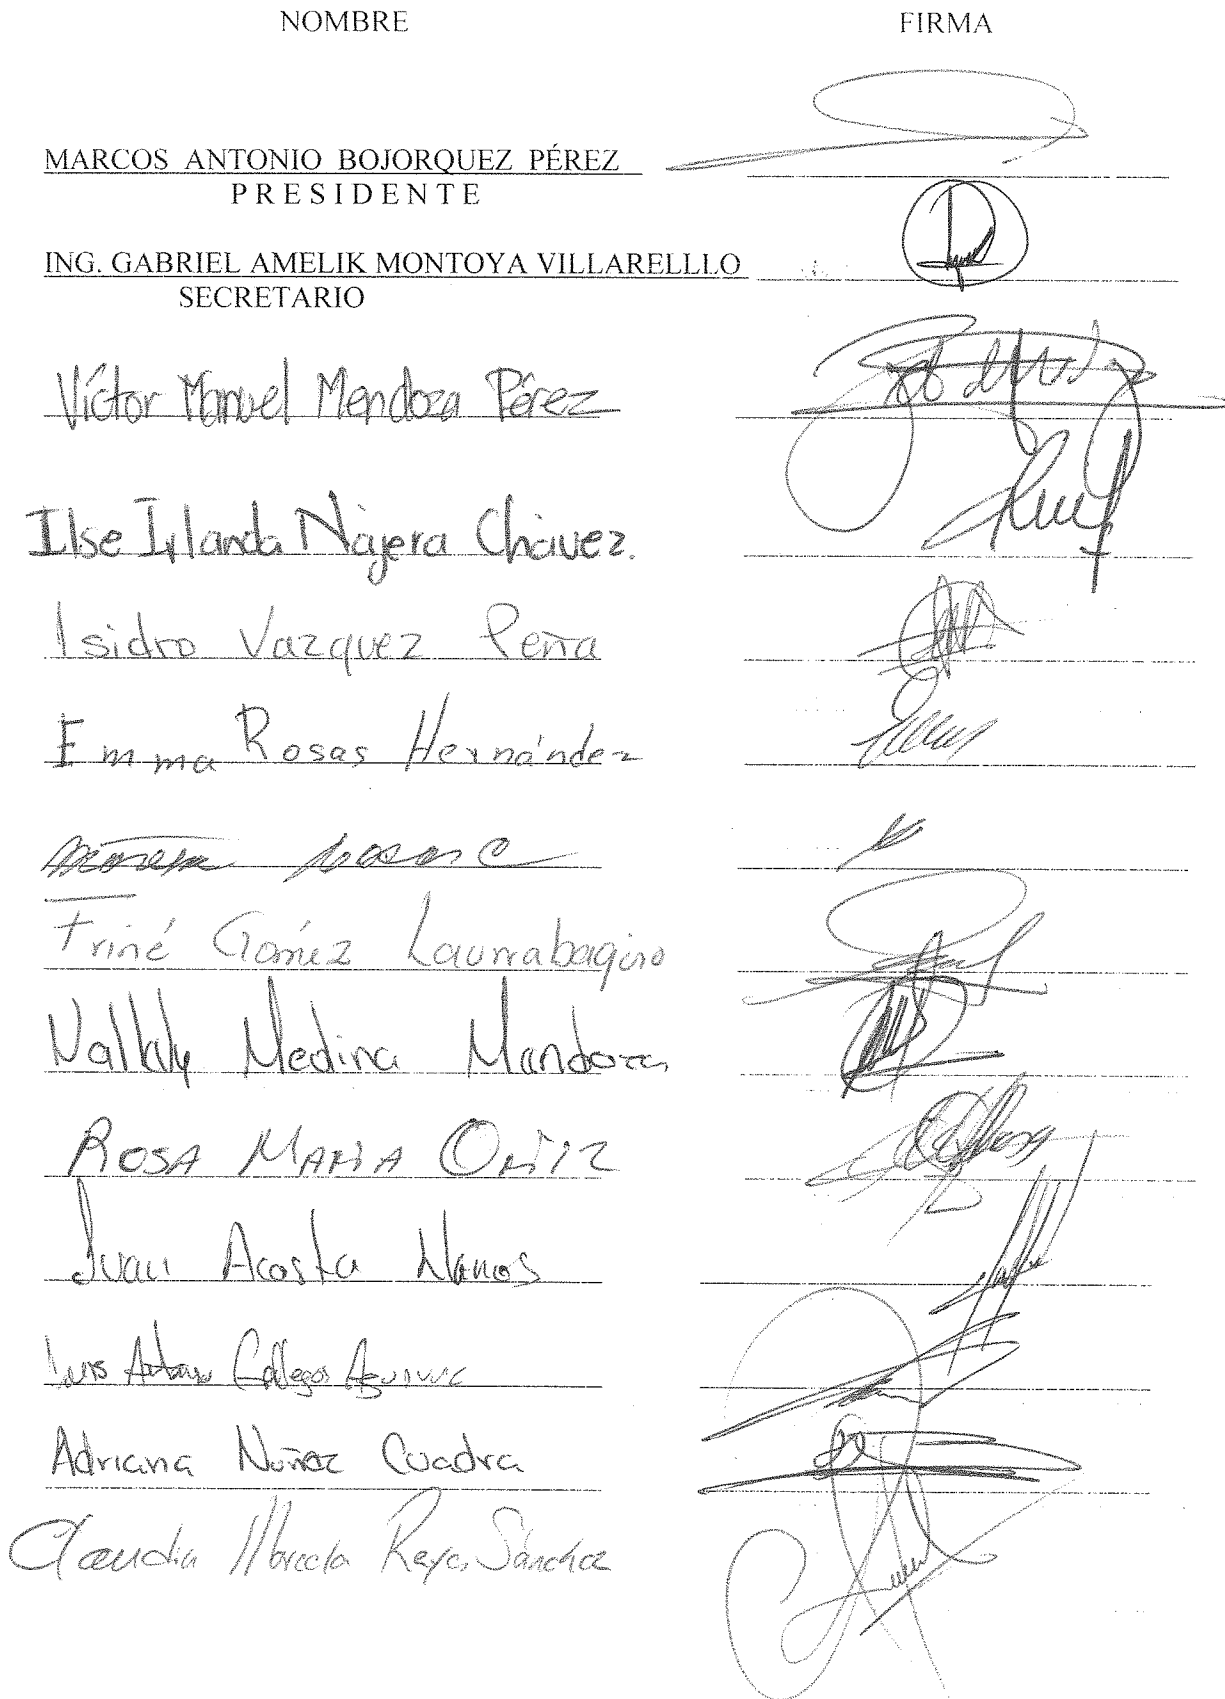 NOMBRE FIRMA
MARCOS ANTONIO BOJORQUEZ PÉREZ
PRESIDENTE
ING. GABRIEL AMELIK MONTOYA VILLARELLLO
SECRETARIO
Víctor Manuel Mendoza Pérez
Ilse Irlanda Nájera Chávez.
Isidro Vazquez Peña
Emma Rosas Hernández
Friné Goméz
Medina
ROSA MARIA ORTIZ
Juan Acosta
Luis Antonio Gallegos
Adriana Nuñez Cuadra
Claudia Marcela Reyes Sánchez